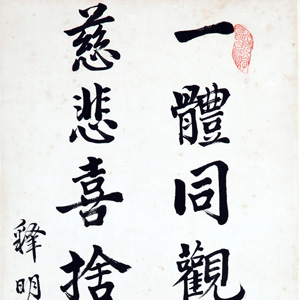 一體同觀
慈悲喜捨
釋明